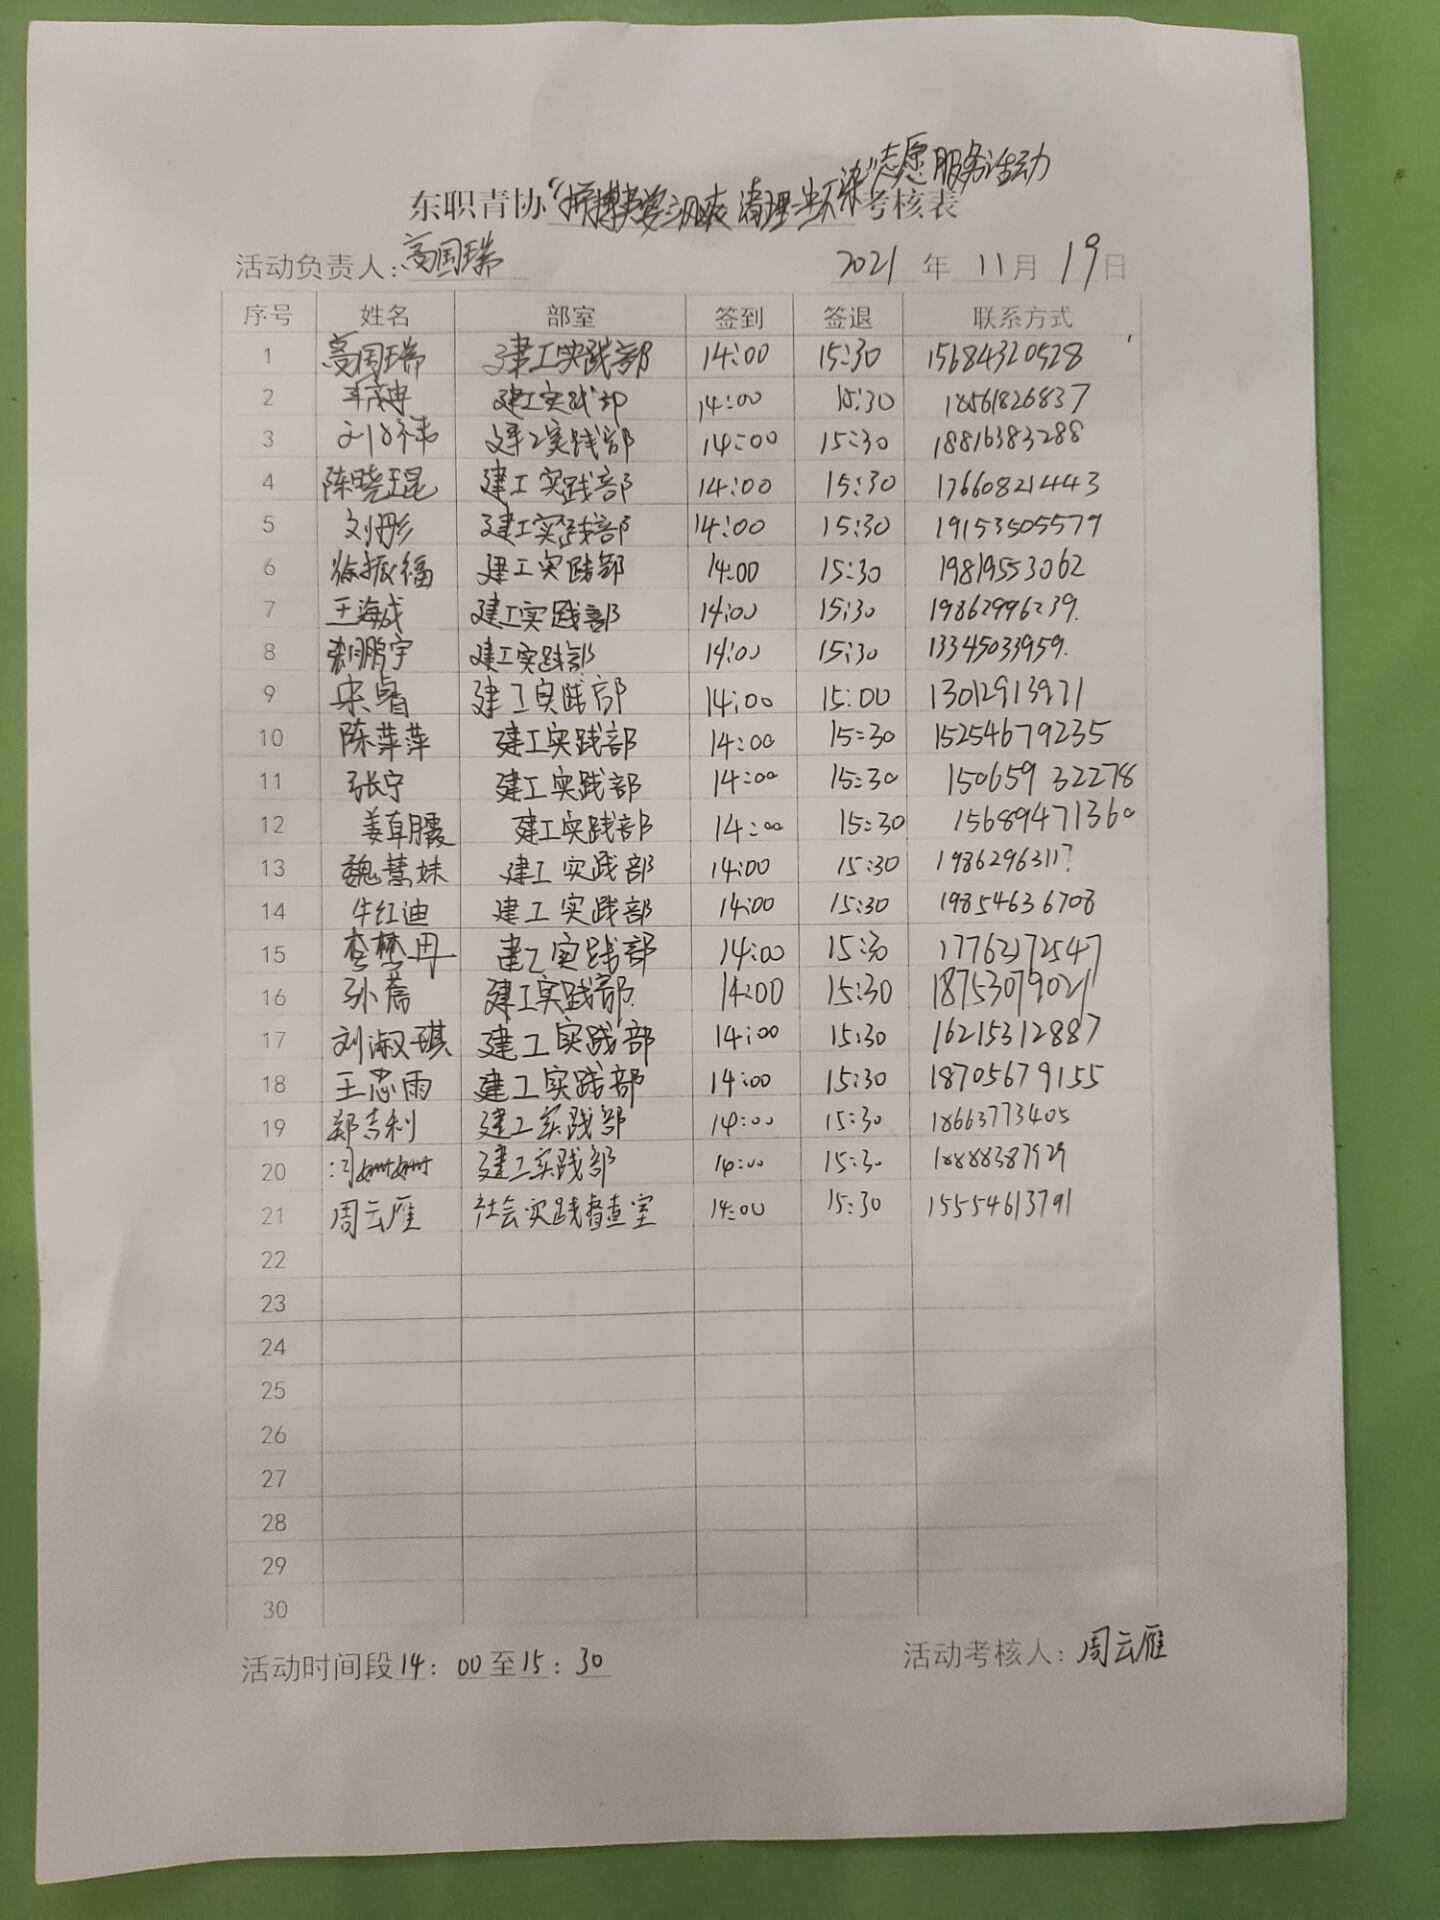 东职青协 清理 志愿服务活动 考核表
活动负责人:高国瑞 2021 年 11 月 19 日
序号 姓名 部室 签到 签退 联系方式
1 高国瑞 建工实践部 14:00 15:30 15684320528
2 建工实践部 14:00 15:30 18561826837
3 建工实践部 14:00 15:30 18816383288
4 陈晓琨 建工实践部 14:00 15:30 17660821443
5 刘彤 建工实践部 14:00 15:30 19153505579
6 徐振福 建工实践部 14:00 15:30 19819553062
7 王海成 建工实践部 14:00 15:30 19862996239
8 鹏宇 建工实践部 14:00 15:30 13345033959
9 宋睿 建工实践部 14:00 15:00 13012913971
10 陈萍萍 建工实践部 14:00 15:30 15254679235
11 张宁 建工实践部 14:00 15:30 15065932278
12 建工实践部 14:00 15:30 15689471360
13 魏慧妹 建工实践部 14:00 15:30 19862963117
14 牛红迪 建工实践部 14:00 15:30 19854636708
15 李梦丹 建工实践部 14:00 15:30 17762172547
16 建工实践部 14:00 15:30 18753079021
17 刘淑琪 建工实践部 14:00 15:30 16215312887
18 王芯雨 建工实践部 14:00 15:30 18705679155
19 郑吉利 建工实践部 14:00 15:30 18663773405
20 建工实践部 14:00 15:30 18888387929
21 周云雁 社会实践督查室 14:00 15:30 15554613791
22
23
24
25
26
27
28
29
30
活动时间段14:00至15:30 活动考核人:周云雁